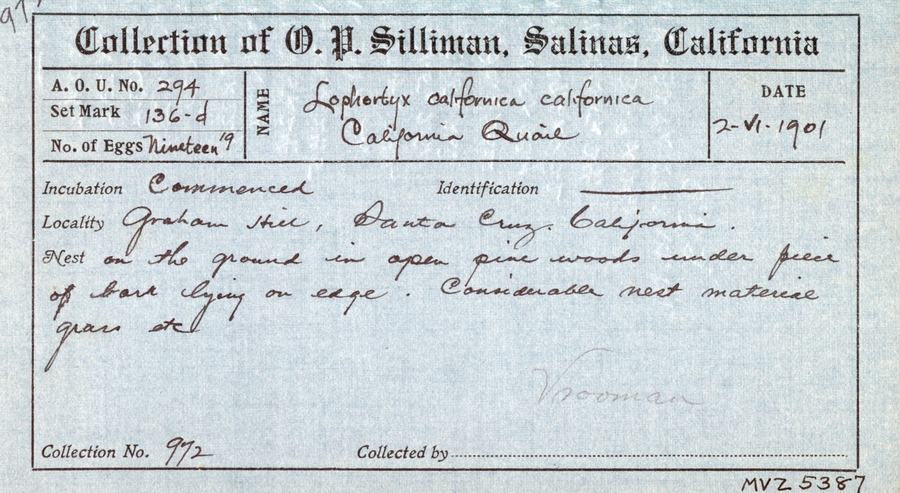 Collection of O. P. Silliman, Salinas, California
A. O. U. No. 294
Set Mark 136-d
No. of Eggs Nineteen 19
NAME
Lophortyx californica californica
California Quail
DATE
2-VI-1901
Incubation Commenced Identification
Locality Graham Hill, Santa Cruz. California.
Nest on the ground in open pine woods under piece
of bark lying on edge. Considerable nest material
grass etc
Vrooman
Collection No. 972 Collected by
MVZ 5387